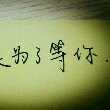 为了等你.